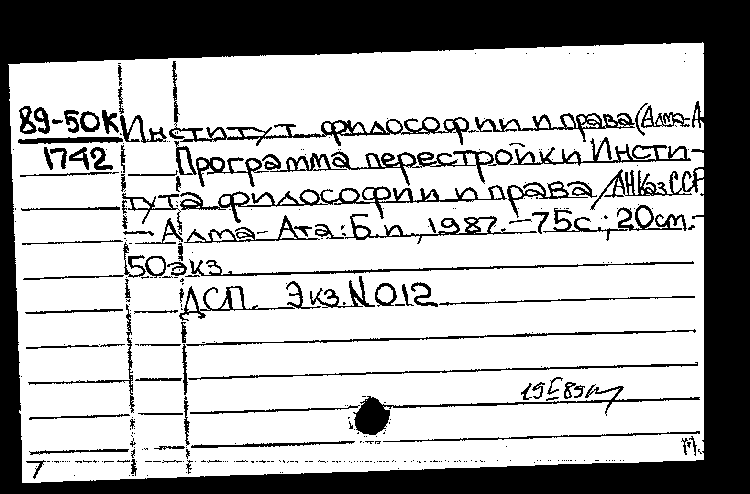 89-50К Институт философии и права (Алма-А
1742 Программа перестройки Инсти-
тута философии и права / АН КазССР.
— Алма-Ата: Б.и., 1987. — 75с.; 20см. —
50экз.
ДСП. Экз. N 012